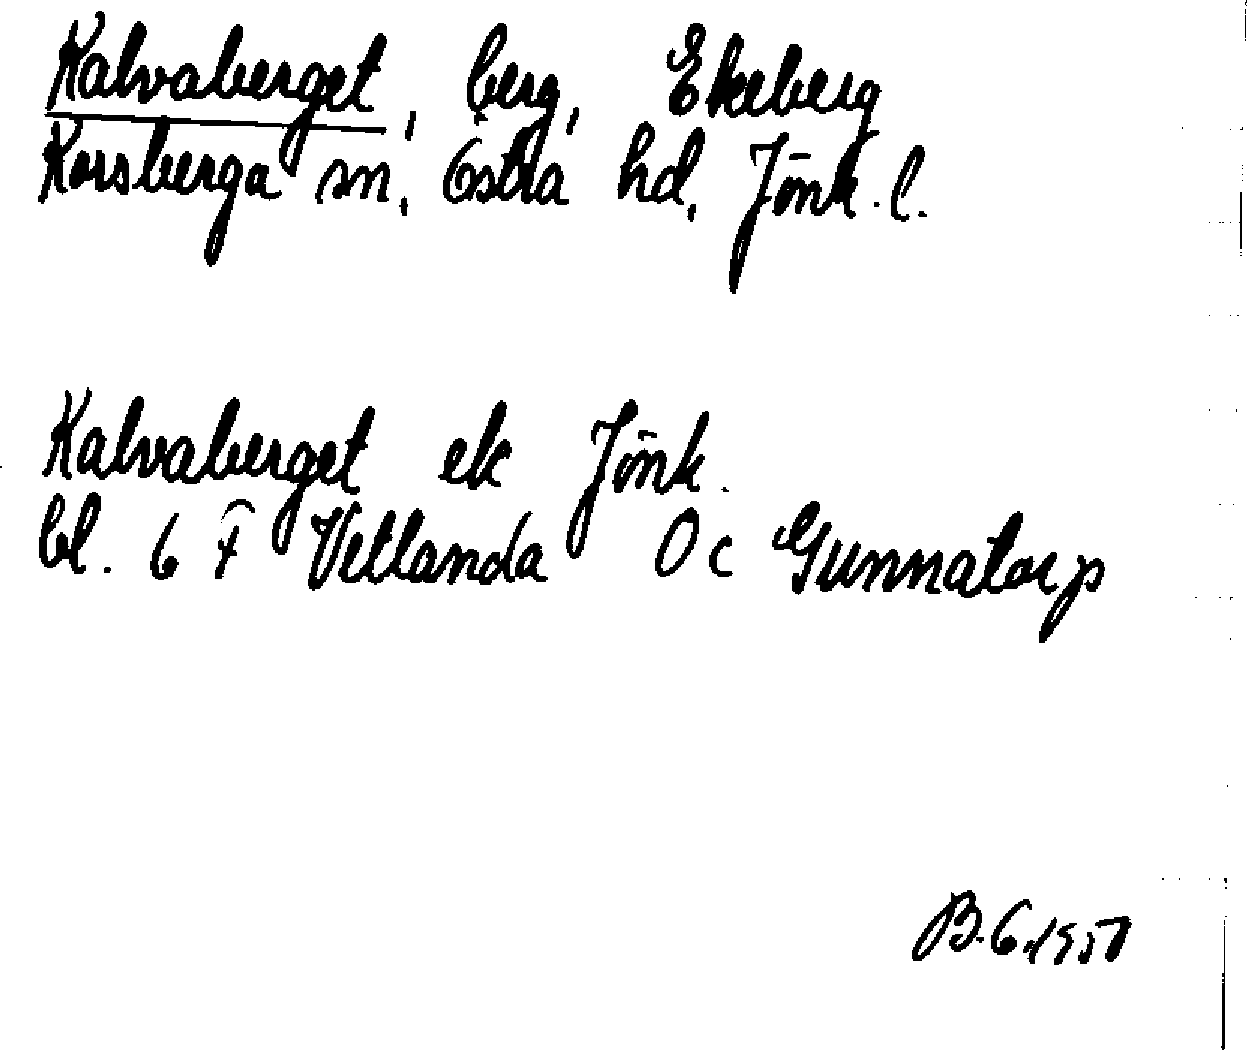 Kalvaberget, berg, Ekeberg
Korsberga sn, Östra hd, Jönk. l.
Kalvaberget ek Jönk.
bl. 6 F Vetlanda Oc Gunnatorp
B.G.1957